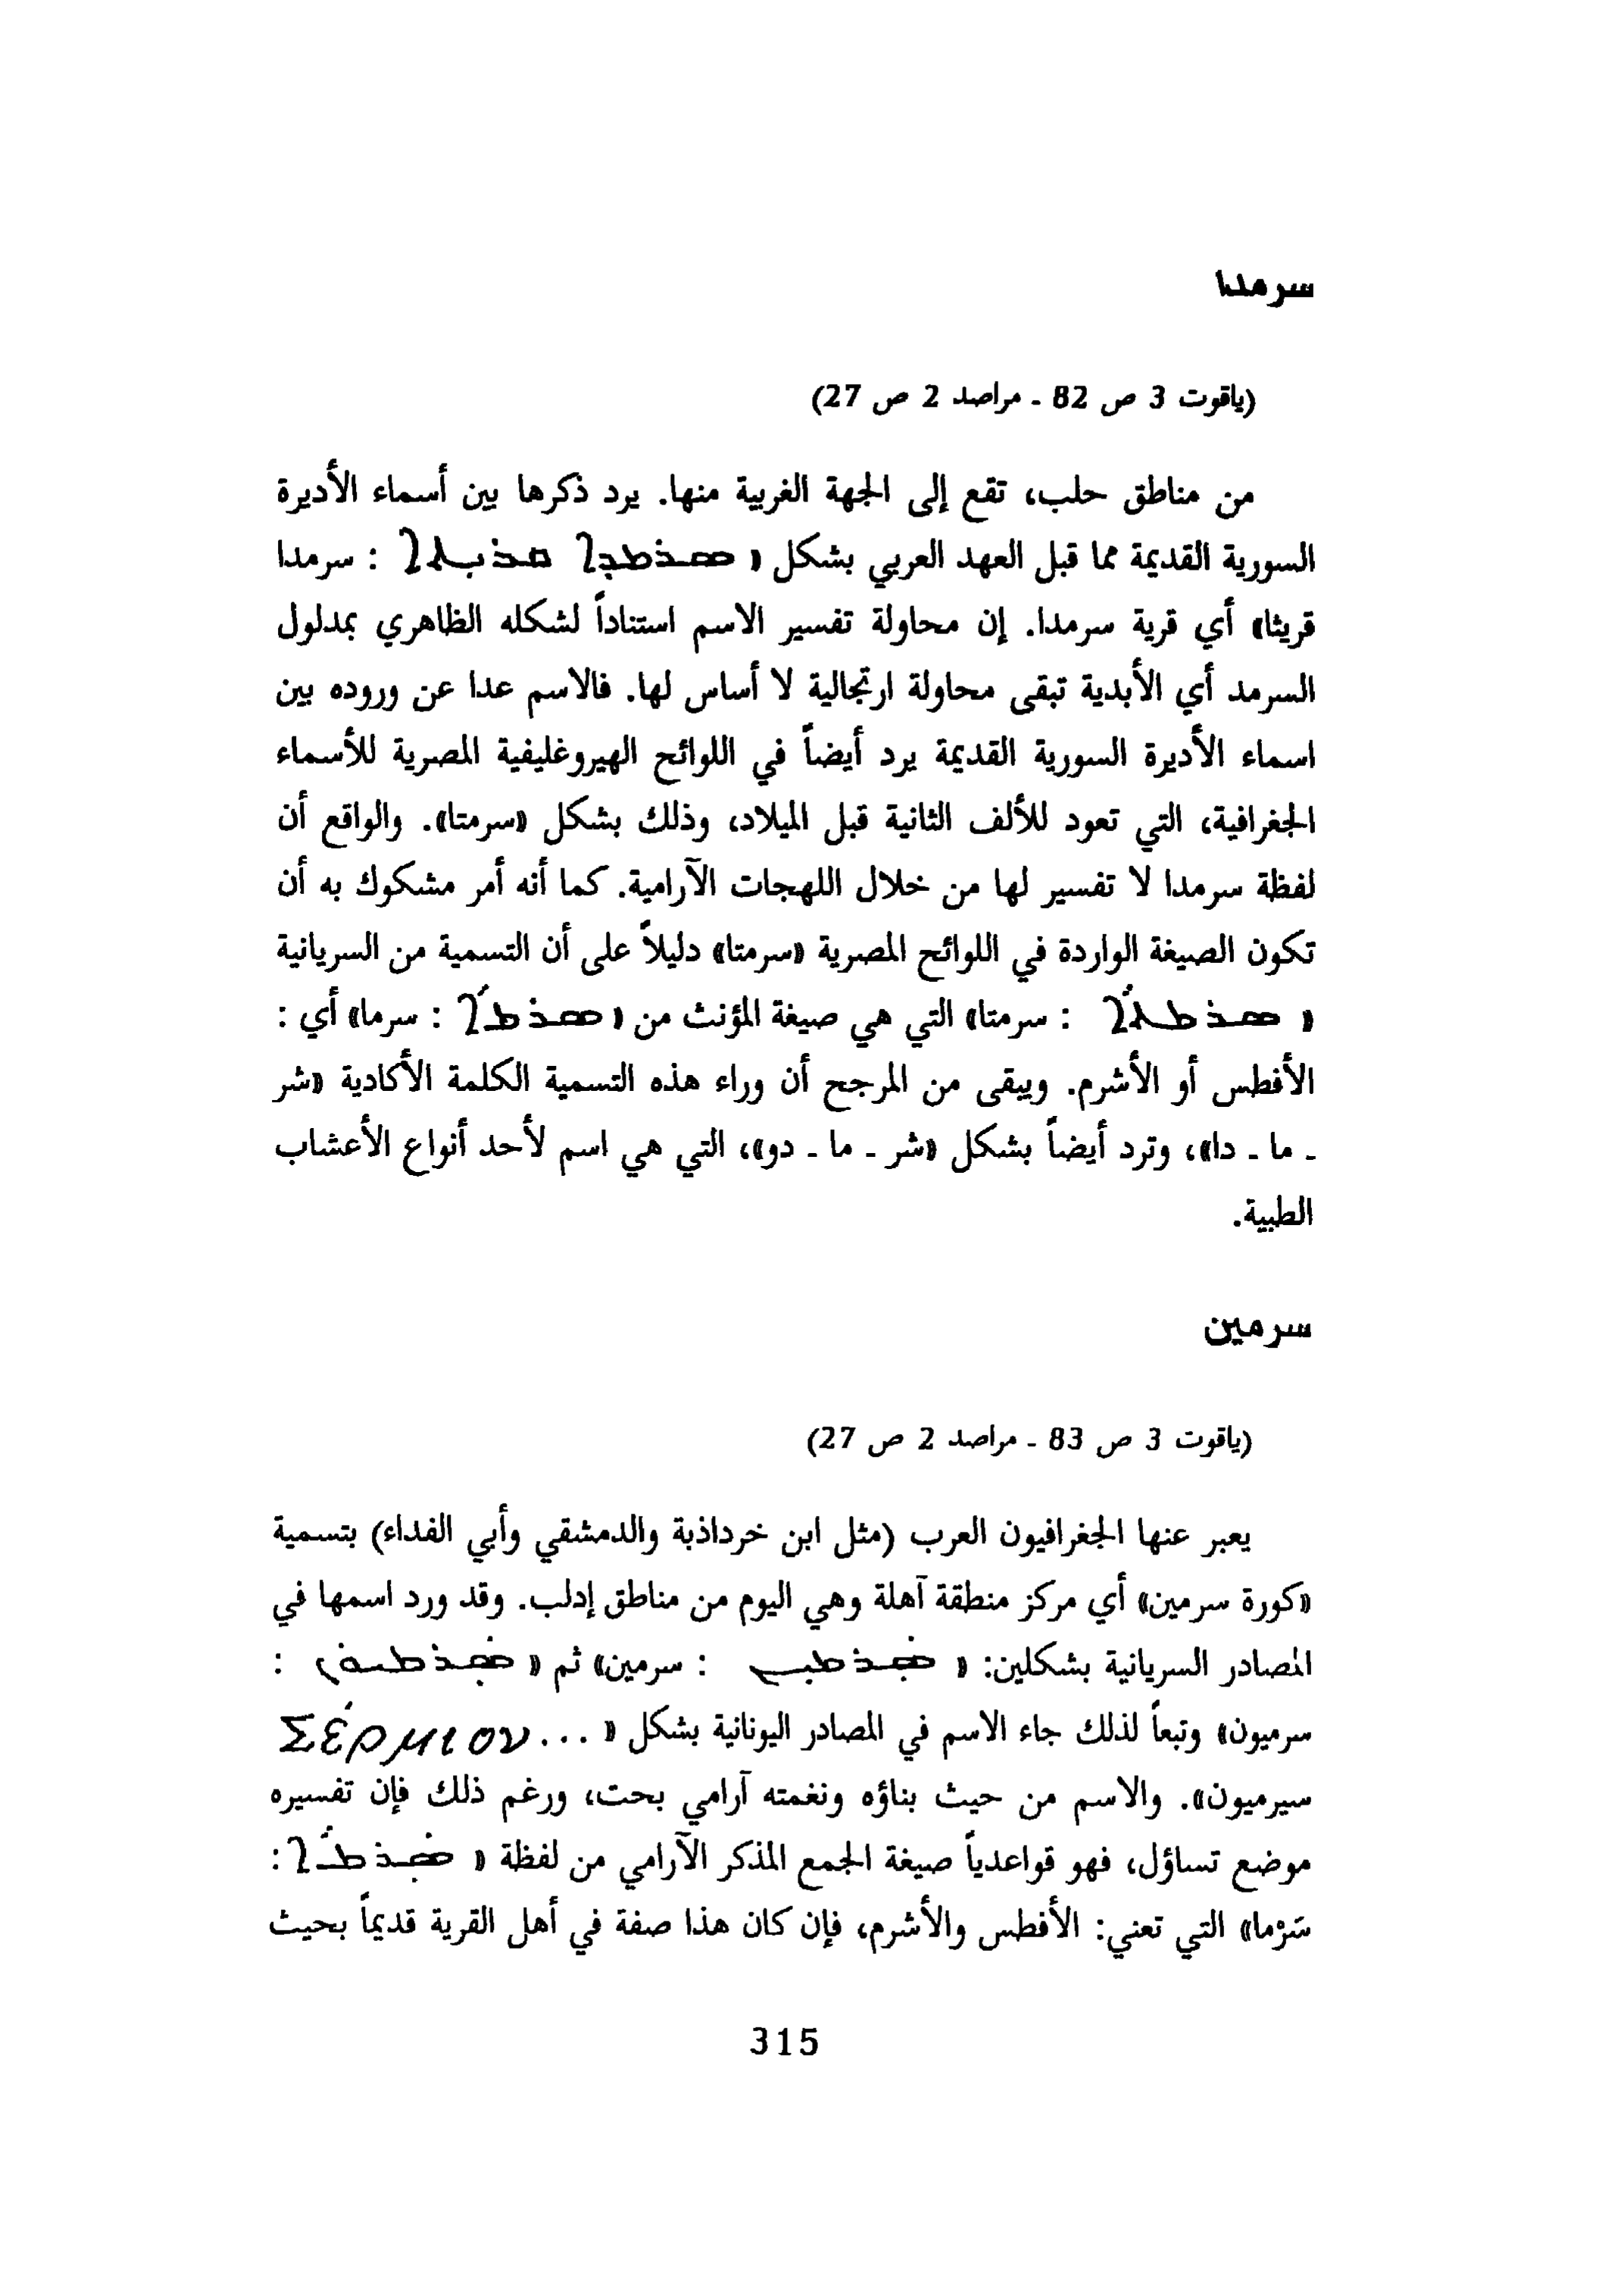 سرمدا
(ياقوت 3 ص 82 ـ مراصد 2 ص 27)
من مناطق حلب، تقع إلى الجهة الغربية منها. يرد ذكرها بين أسماء الأديرة
السورية القديمة مما قبل العهد العربي بشكل «ܣܪܡܕܐ ܩܪܝܬܐ : سرمدا
قريثا» أي قرية سرمدا. إن محاولة تفسير الاسم استناداً لشكله الظاهري بمدلول
السرمد أي الأبدية تبقى محاولة ارتجالية لا أساس لها. فالاسم عدا عن وروده بين
اسماء الأديرة السورية القديمة يرد أيضاً في اللوائح الهيروغليفية المصرية للأسماء
الجغرافية، التي تعود للألف الثانية قبل الميلاد، وذلك بشكل «سرمتا». والواقع أن
لفظة سرمدا لا تفسير لها من خلال اللهجات الآرامية. كما أنه أمر مشكوك به أن
تكون الصيغة الواردة في اللوائح المصرية «سرمتا» دليلاً على أن التسمية من السريانية
«ܣܪܡܬܐ : سرمتا» التي هي صيغة المؤنث من «ܣܪܡܐ : سرما» أي :
الأفطس أو الأشرم. ويبقى من المرجح أن وراء هذه التسمية الكلمة الأكادية «شر
ـ ما ـ دا»، وترد أيضاً بشكل «شر ـ ما ـ دو»، التي هي اسم لأحد أنواع الأعشاب
الطبية.
سرمين
(ياقوت 3 ص 83 ـ مراصد 2 ص 27)
يعبر عنها الجغرافيون العرب (مثل ابن خرداذبة والدمشقي وأبي الفداء) بتسمية
«كورة سرمين» أي مركز منطقة آهلة وهي اليوم من مناطق إدلب. وقد ورد اسمها في
المصادر السريانية بشكلين: «ܣܪܡܝܢ : سرمين» ثم «ܣܪܡܝܘܢ :
سرميون» وتبعاً لذلك جاء الاسم في المصادر اليونانية بشكل «... Σέρμιον
سيرميون». والاسم من حيث بناؤه ونغمته آرامي بحت، ورغم ذلك فإن تفسيره
موضع تساؤل، فهو قواعدياً صيغة الجمع المذكر الآرامي من لفظة «ܣܪܡܐ :
سَرْما» التي تعني: الأفطس والأشرم، فإن كان هذا صفة في أهل القرية قديماً بحيث
315